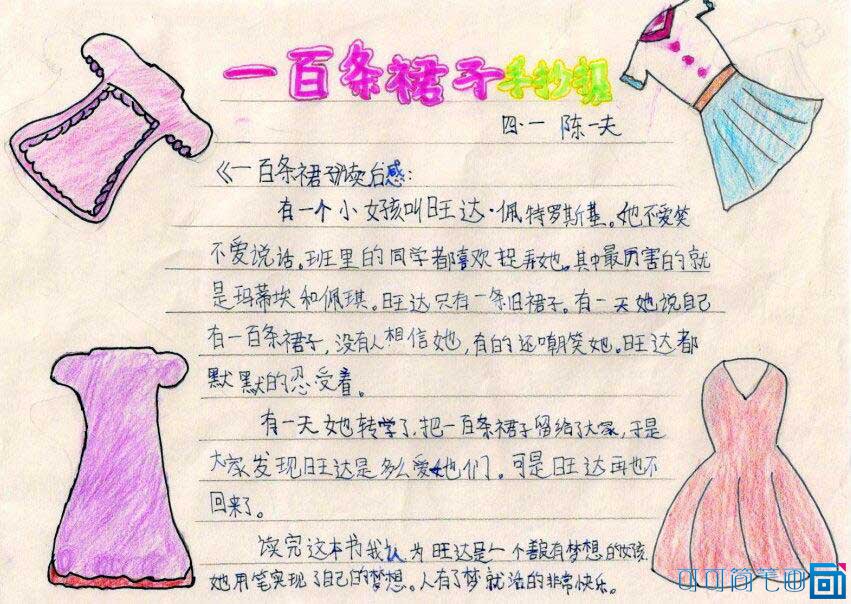 一百条裙子手抄报
四·一 陈一夫
《一百条裙子》读后感:
有一个小女孩叫旺达·佩特罗斯基。她不爱笑
不爱说话。班里的同学都喜欢捉弄她。其中最厉害的就
是玛蒂埃和佩琪。旺达只有一条旧裙子。有一天她说自己
有一百条裙子,没有人相信她,有的还嘲笑她。旺达都
默默的忍受着。
有一天她转学了,把一百条裙子留给了大家,于是
大家发现旺达是多么爱她们。可是旺达再也不
回来了。
读完这本书我认为旺达是一个很有梦想的女孩.
她用笔实现了自己的梦想。人有了梦就活的非常快乐。
可可简笔画